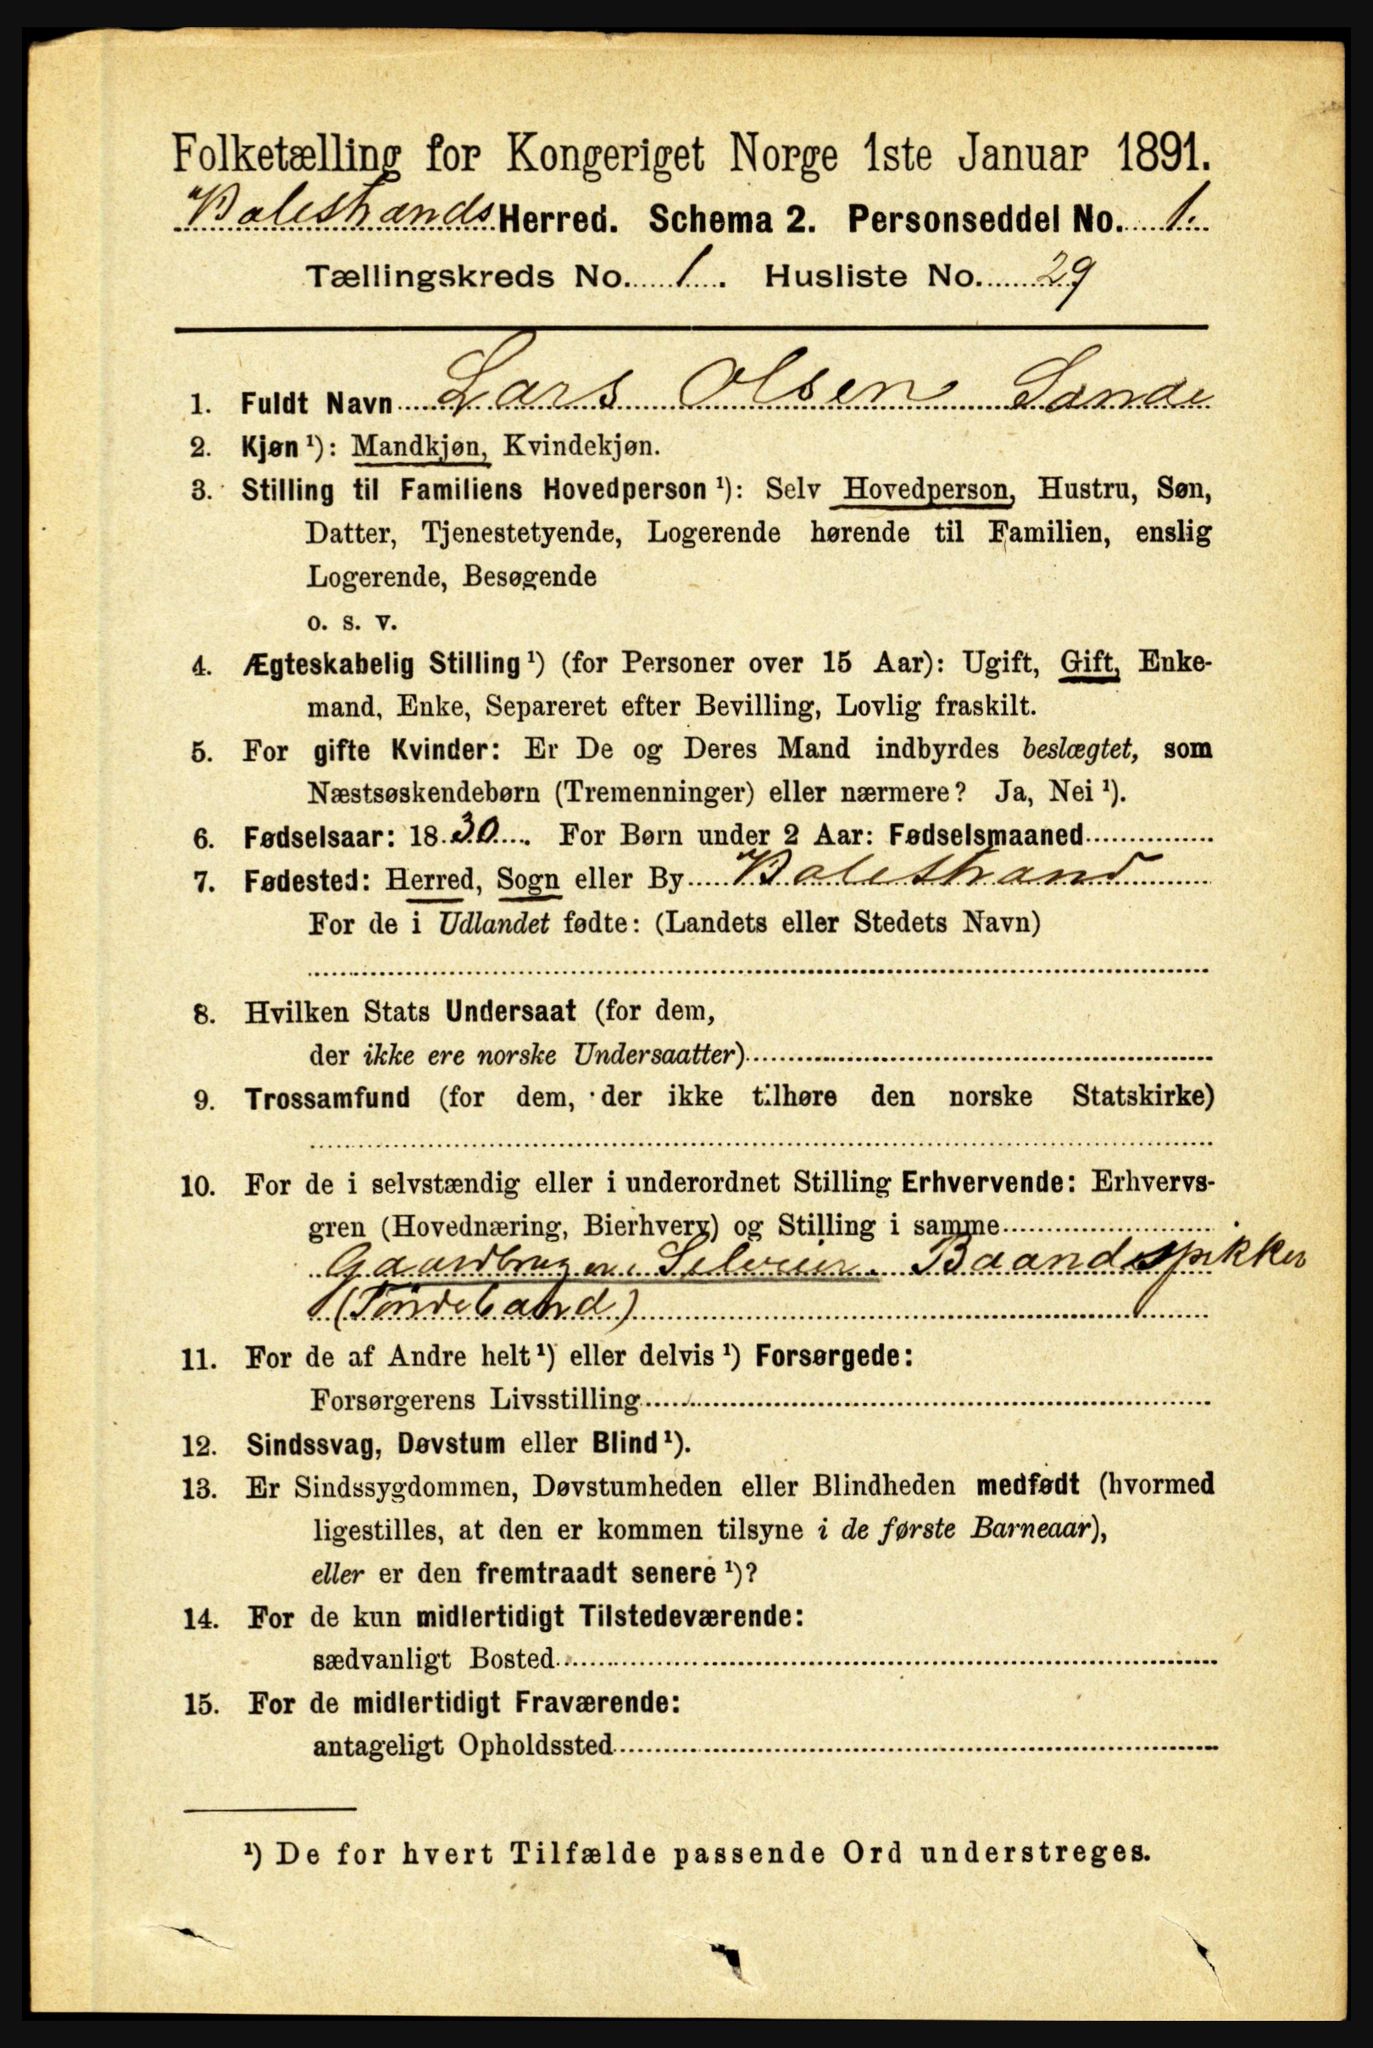 Folketælling for Kongeriget Norge 1ste Januar 1891.
Balestrands Herred. Schema 2. Personseddel No. 1.
Tællingskreds No. 1. Husliste No. 29
1. Fuldt Navn Lars Olsen Sande
2. Kjøn¹): Mandkjøn, Kvindekjøn.
3. Stilling til Familiens Hovedperson¹): Selv Hovedperson, Hustru, Søn,
Datter, Tjenestetyende, Logerende hørende til Familien, enslig
Logerende, Besøgende
o. s. v.
4. Ægteskabelig Stilling¹) (for Personer over 15 Aar): Ugift, Gift, Enke-
mand, Enke, Separeret efter Bevilling, Lovlig fraskilt.
5. For gifte Kvinder: Er De og Deres Mand indbyrdes beslægtet, som
Næstsøskendebørn (Tremenninger) eller nærmere? Ja, Nei¹).
6. Fødselsaar: 1830. For Børn under 2 Aar: Fødselsmaaned
7. Fødested: Herred, Sogn eller By Balestrand
For de i Udlandet fødte: (Landets eller Stedets Navn)
8. Hvilken Stats Undersaat (for dem,
der ikke ere norske Undersaatter)
9. Trossamfund (for dem, der ikke tilhøre den norske Statskirke)
10. For de i selvstændig eller i underordnet Stilling Erhvervende: Erhvervs-
gren (Hovednæring, Bierhverv) og Stilling i samme
Gaardbruger, Selveier. Baandspikker
(Tøndebaand)
11. For de af Andre helt¹) eller delvis¹) Forsørgede:
Forsørgerens Livsstilling
12. Sindssvag, Døvstum eller Blind¹).
13. Er Sindssygdommen, Døvstumheden eller Blindheden medfødt (hvormed
ligestilles, at den er kommen tilsyne i de første Barneaar),
eller er den fremtraadt senere¹)?
14. For de kun midlertidigt Tilstedeværende:
sædvanligt Bosted
15. For de midlertidigt Fraværende:
antageligt Opholdssted
¹) De for hvert Tilfælde passende Ord understreges.